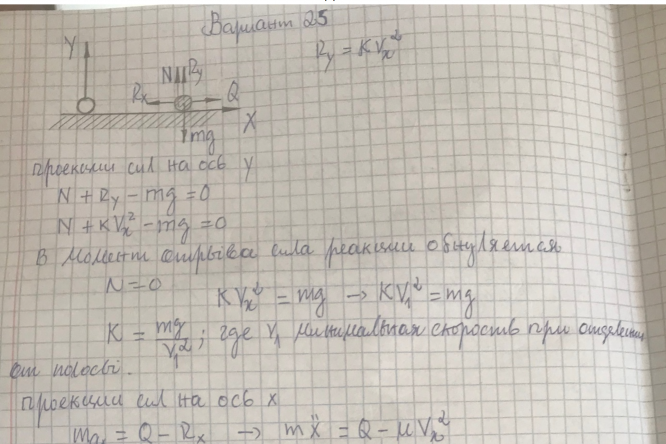 Вариант 25
R_y = KV_x^2
Y
N R_y
R_x Q
X
mg
проекции сил на ось Y
N + R_y - mg = 0
N + KV_x^2 - mg = 0
В момент отрыва сила реакции обнуляется
N = 0
KV_x^2 = mg → KV_1^2 = mg
K = mg/V_1^2; где V_1 минимальная скорость при отделении
от полосы.
проекции сил на ось x
ma_x = Q - R_x → mẍ = Q - μV_x^2